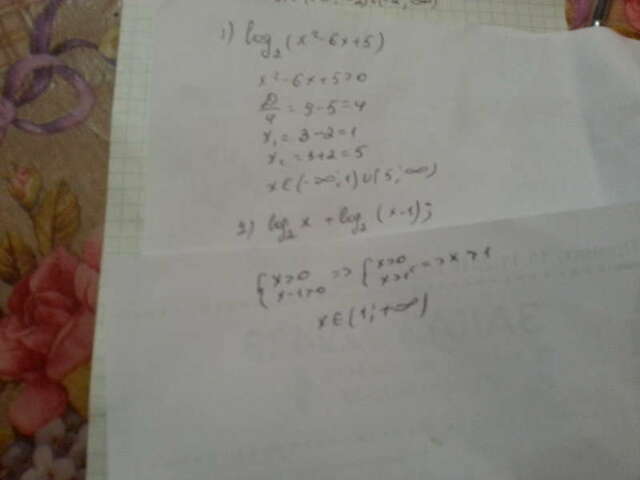 1) log₂(x²-6x+5)
x²-6x+5>0
D/4 = 9-5=4
x₁ = 3-2=1
x₂ = 3+2=5
x∈(-∞;1)∪(5;∞)
2) log₂ x + log₂ (x-1);
{x>0 x-1>0 => {x>0 x>1 => x>1
x∈(1;+∞)